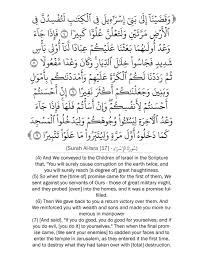 ﴿ وَقَضَيْنَآ إِلَىٰ بَنِىٓ إِسْرَٰٓءِيلَ فِى ٱلْكِتَٰبِ لَتُفْسِدُنَّ فِى
ٱلْأَرْضِ مَرَّتَيْنِ وَلَتَعْلُنَّ عُلُوًّا كَبِيرًا ۝ فَإِذَا جَآءَ
وَعْدُ أُولَىٰهُمَا بَعَثْنَا عَلَيْكُمْ عِبَادًا لَّنَآ أُو۟لِى بَأْسٍ
شَدِيدٍ فَجَاسُوا۟ خِلَٰلَ ٱلدِّيَارِ وَكَانَ وَعْدًا مَّفْعُولًا ۝
ثُمَّ رَدَدْنَا لَكُمُ ٱلْكَرَّةَ عَلَيْهِمْ وَأَمْدَدْنَٰكُم
بِأَمْوَٰلٍ وَبَنِينَ وَجَعَلْنَٰكُمْ أَكْثَرَ نَفِيرًا ۝ إِنْ
أَحْسَنتُمْ أَحْسَنتُمْ لِأَنفُسِكُمْ وَإِنْ أَسَأْتُمْ فَلَهَا فَإِذَا جَآءَ
وَعْدُ ٱلْءَاخِرَةِ لِيَسُۥٓـُٔوا۟ وُجُوهَكُمْ وَلِيَدْخُلُوا۟ ٱلْمَسْجِدَ
كَمَا دَخَلُوهُ أَوَّلَ مَرَّةٍ وَلِيُتَبِّرُوا۟ مَا عَلَوْا۟ تَتْبِيرًا ۝ ﴾
(Surah Al-Isra (17) - سُورَةُ الإِسْرَاء)
(4) And We conveyed to the Children of Israel in the Scripture
that, "You will surely cause corruption on the earth twice, and
you will surely reach [a degree of] great haughtiness.
(5) So when the [time of] promise came for the first of them, We
sent against you servants of Ours - those of great military might,
and they probed [even] into the homes, and it was a promise ful-
filled.
(6) Then We gave back to you a return victory over them. And
We reinforced you with wealth and sons and made you more nu-
merous in manpower
(7) [And said], "If you do good, you do good for yourselves; and if
you do evil, [you do it] to yourselves." Then when the final prom-
ise came, [We sent your enemies] to sadden your faces and to
enter the temple in Jerusalem, as they entered it the first time,
and to destroy what they had taken over with [total] destruction.